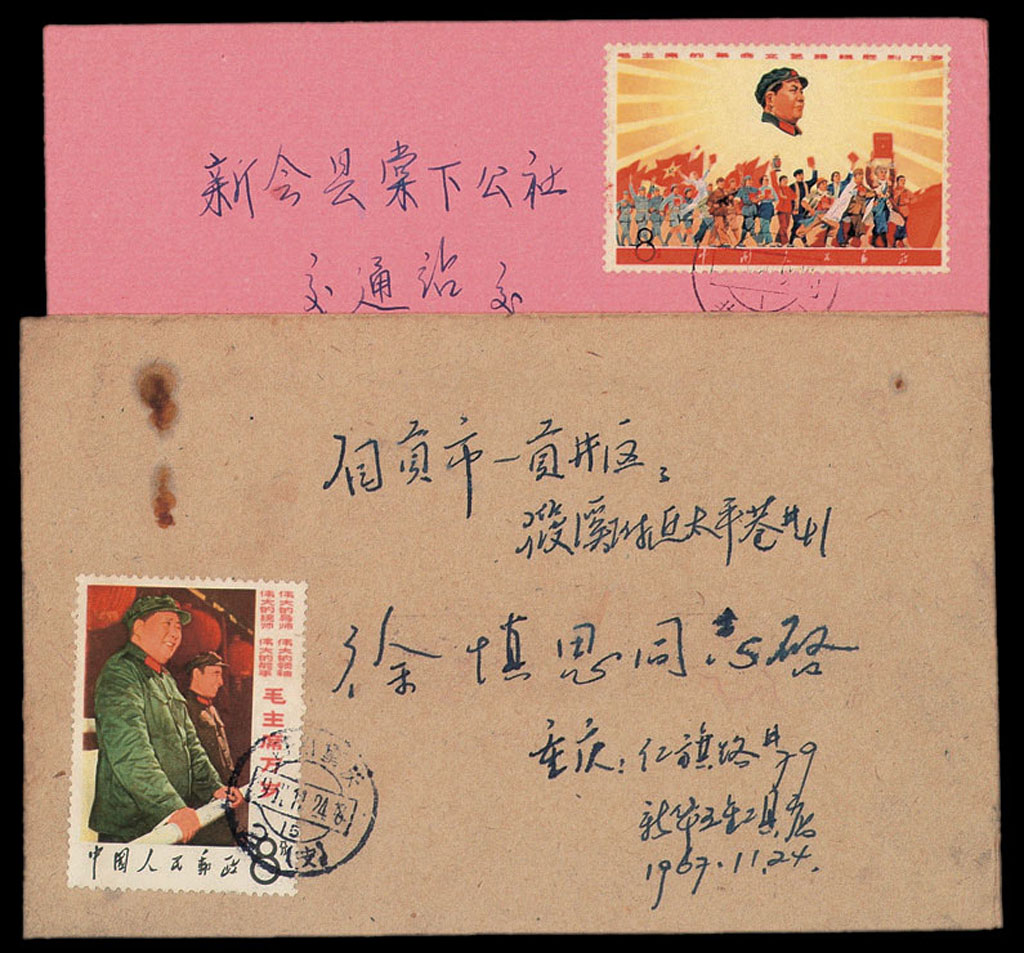 新会县棠下公社
交通站 交
8
中国人民邮政
自贡市一贡井区
太平巷
徐慎思同志启
重庆：仁旗路
新华五金工具店
1967.11.24.
伟大的导师
伟大的领袖
伟大的统帅
伟大的舵手
毛主席万岁
24
15
中国人民邮政
8